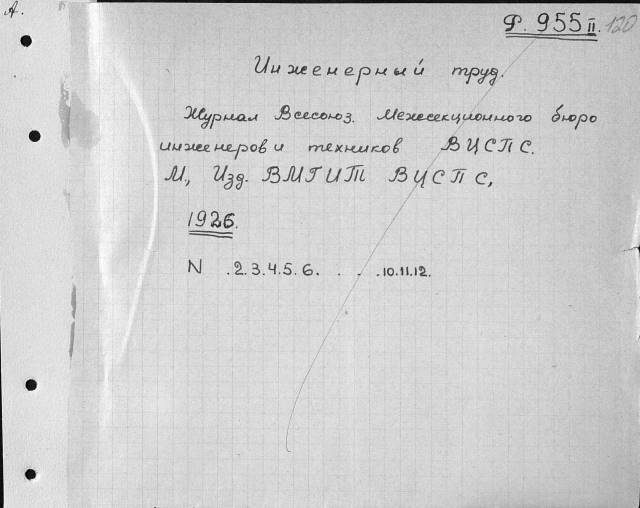 А.
Ф. 955 II. 120
Инженерный труд.
Журнал Всесоюз. Межсекционного бюро
инженеров и техников ВЦСПС.
М., Изд. ВМБИТ ВЦСПС,
1926.
N .2.3.4.5.6. . . .10.11.12.